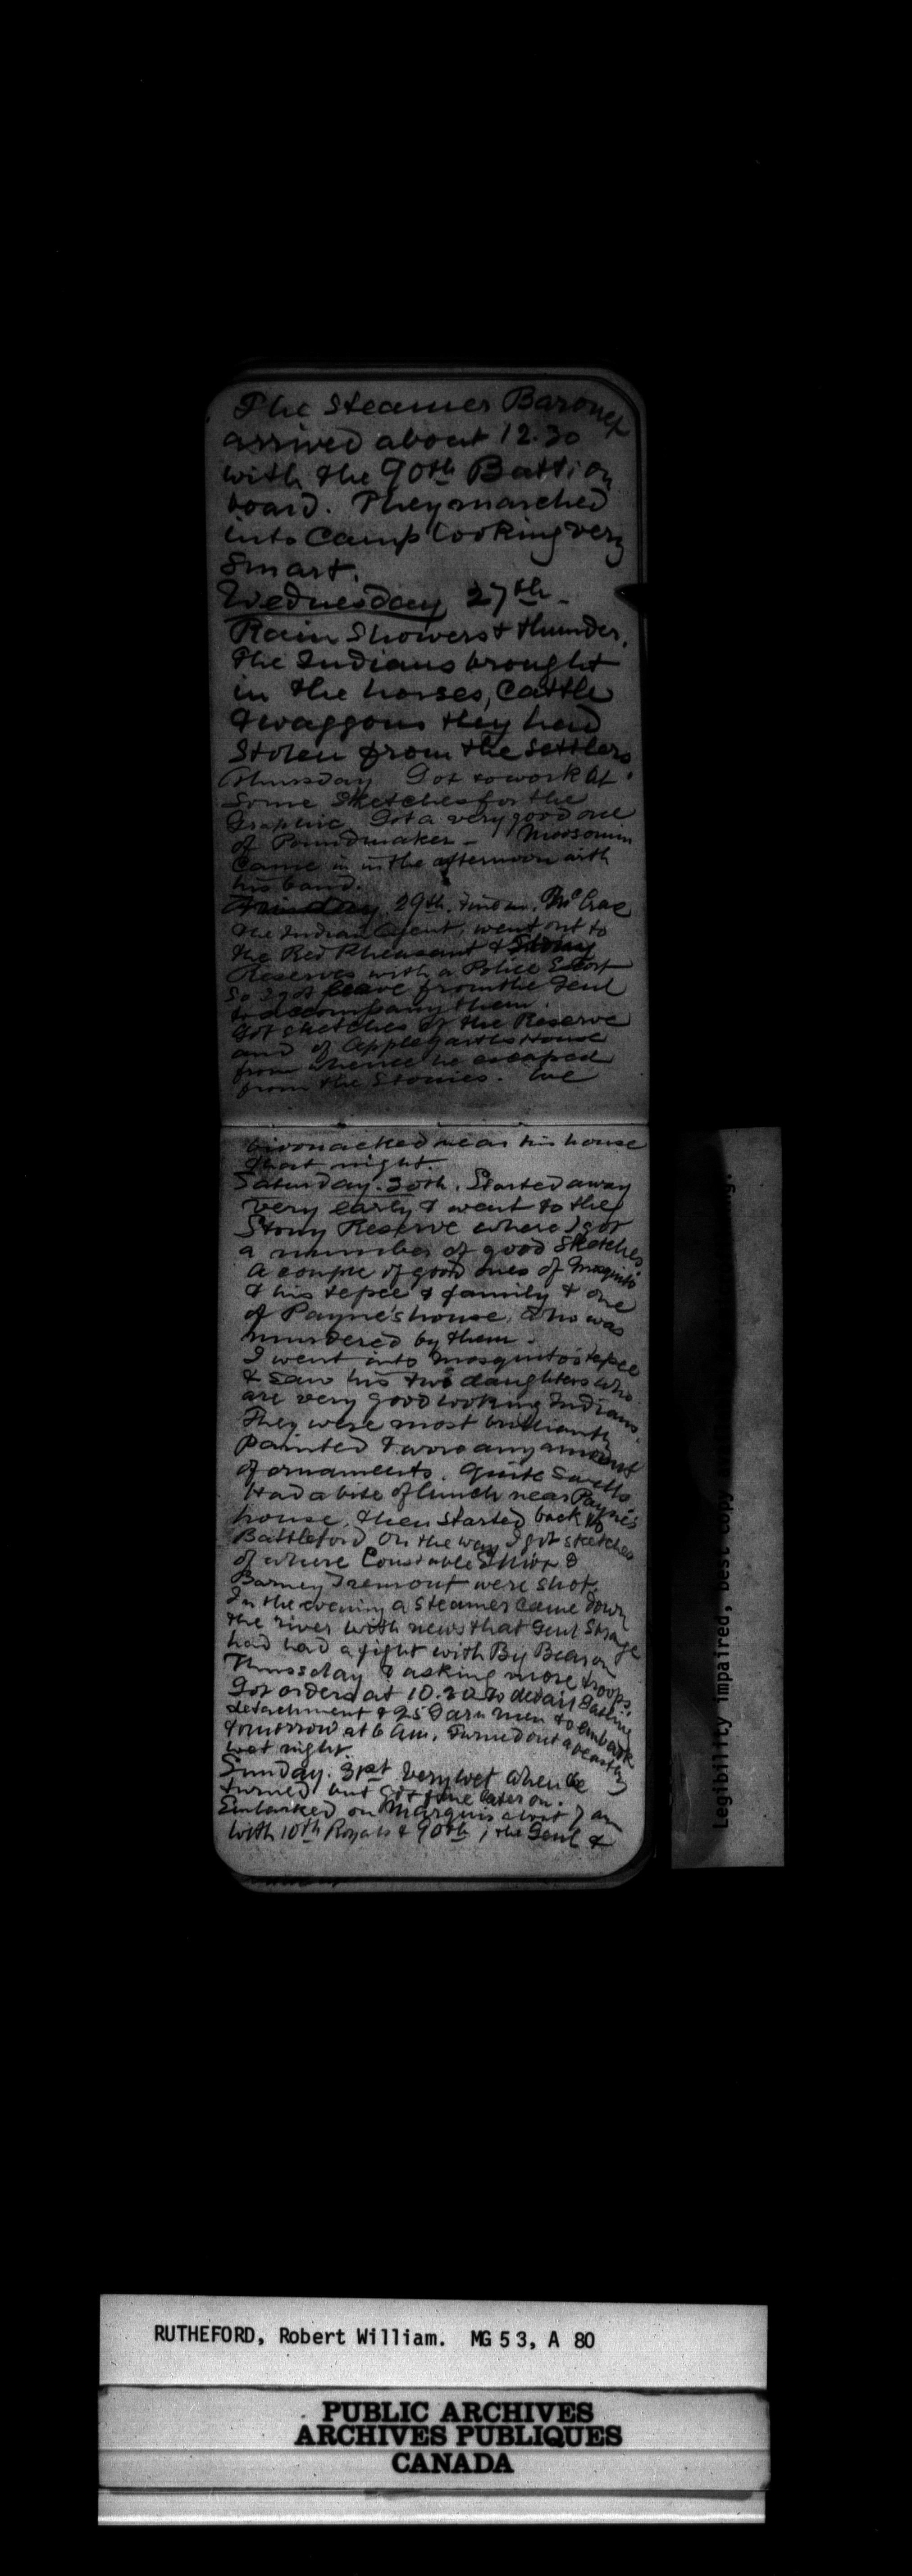 The Steamer Baroness
arrived about 12.30
with the 90th Batt. on
board. They marched
into Camp looking very
Smart.
Wednesday 27th -
Rain Showers & thunder.
The Indians brought
in the horses, Cattle
& waggons they had
Stolen from the Settlers.
Thursday Got to work at
Some Sketches for the
Graphic. Got a very good one
of Poundmaker - Moosomin
Came in in the afternoon with
his band.
29th. McCrae
the Indian Agent, went out to
the Red Pheasant & Stony
Reserves with a Police Escort
So I got leave from the Genl
to accompany them.
Got sketches of the Reserve
and of Applegarths House
from whence he escaped
from the Stonies. We
bivouacked near his house
that night.
Saturday. 30th. Started away
very early & went to the
Stony Reserve where I got
a number of good Sketches
A couple of good ones of Mosquito
& his tepee & family & one
of Payne's house, who was
murdered by them.
I went into Mosquito's tepee
& saw his two daughters who
are very good looking Indians.
They were most brilliantly
painted & wore any amount
of ornaments. Quite Swells.
Had a bite of lunch near Payne's
house, & then started back to
Battleford On the way I got sketches
of where Constable &
Barney Tremont were shot.
In the evening a Steamer came down
the river with news that Genl Strange
had had a fight with Big Bear on
Thursday & asking more troops.
Got orders at 10.20 to detail Gatling
detachment & 25 Garn men to embark
tomorrow at 6 am. Turned out a beastly
wet night.
Sunday. 31st Very wet when we
turned but got fine later on.
Embarked on Marquis about 7 am
With 10th Royals & 90th, the Genl &
Legibility impaired, best copy
RUTHEFORD, Robert William. MG 53, A 80
PUBLIC ARCHIVES
ARCHIVES PUBLIQUES
CANADA